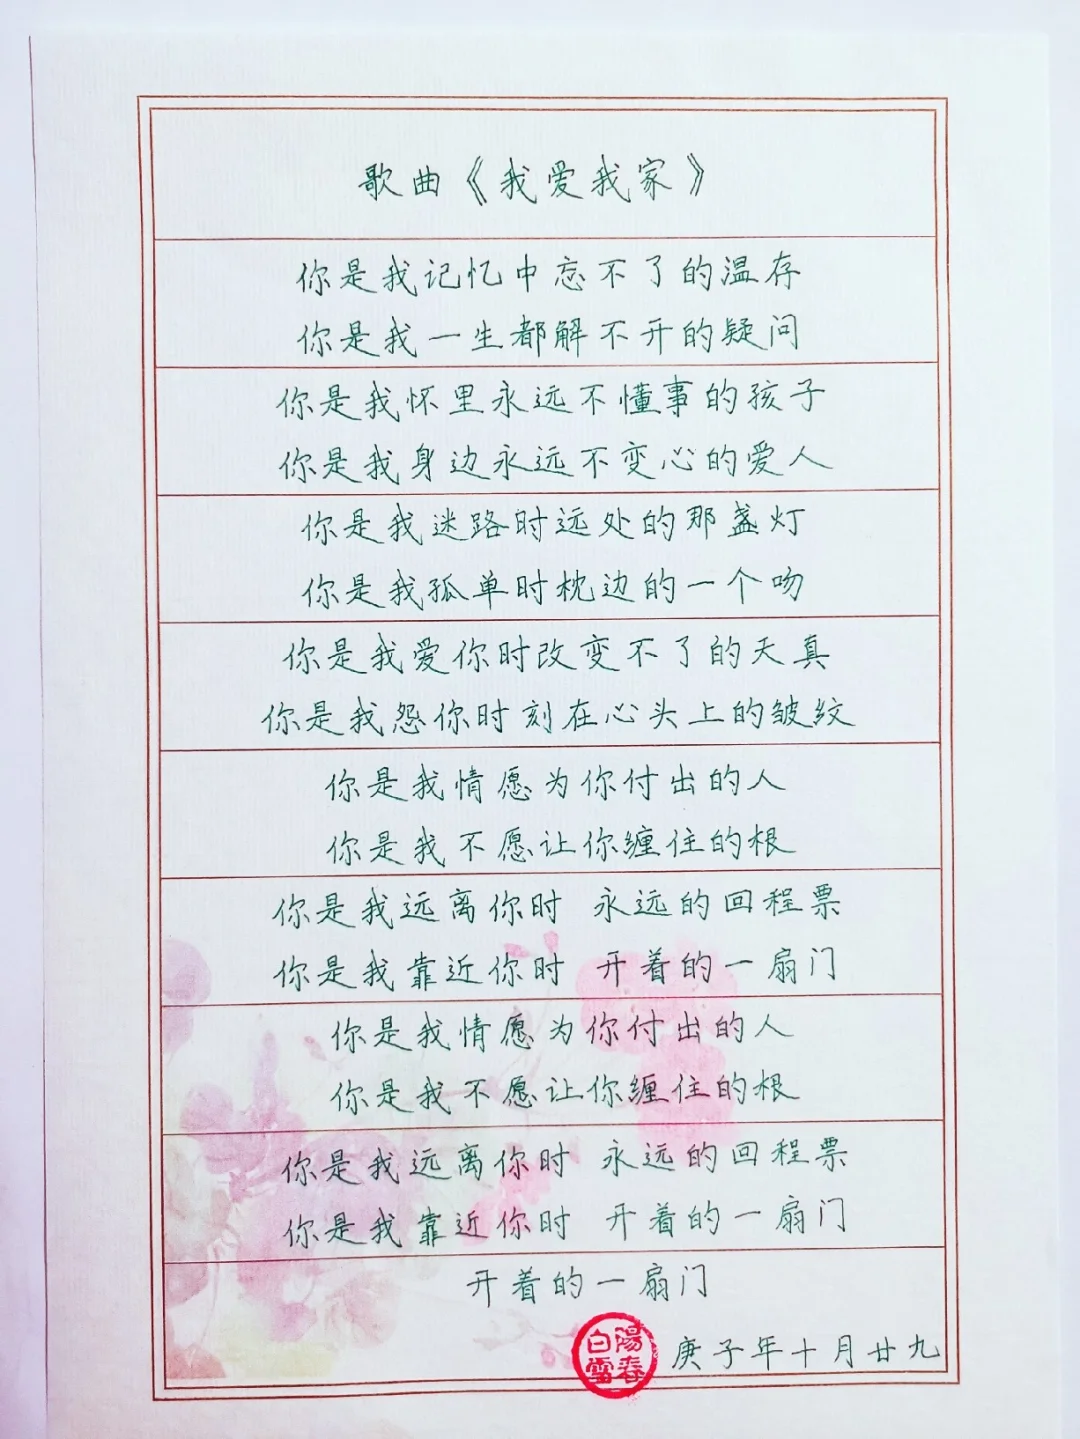 歌曲《我爱我家》
你是我记忆中忘不了的温存
你是我一生都解不开的疑问
你是我怀里永远不懂事的孩子
你是我身边永远不变心的爱人
你是我迷路时远处的那盏灯
你是我孤单时枕边的一个吻
你是我爱你时改变不了的天真
你是我怨你时刻在心头上的皱纹
你是我情愿为你付出的人
你是我不愿让你缠住的根
你是我远离你时 永远的回程票
你是我靠近你时 开着的一扇门
你是我情愿为你付出的人
你是我不愿让你缠住的根
你是我远离你时 永远的回程票
你是我靠近你时 开着的一扇门
开着的一扇门
陽春白雪
庚子年十月廿九